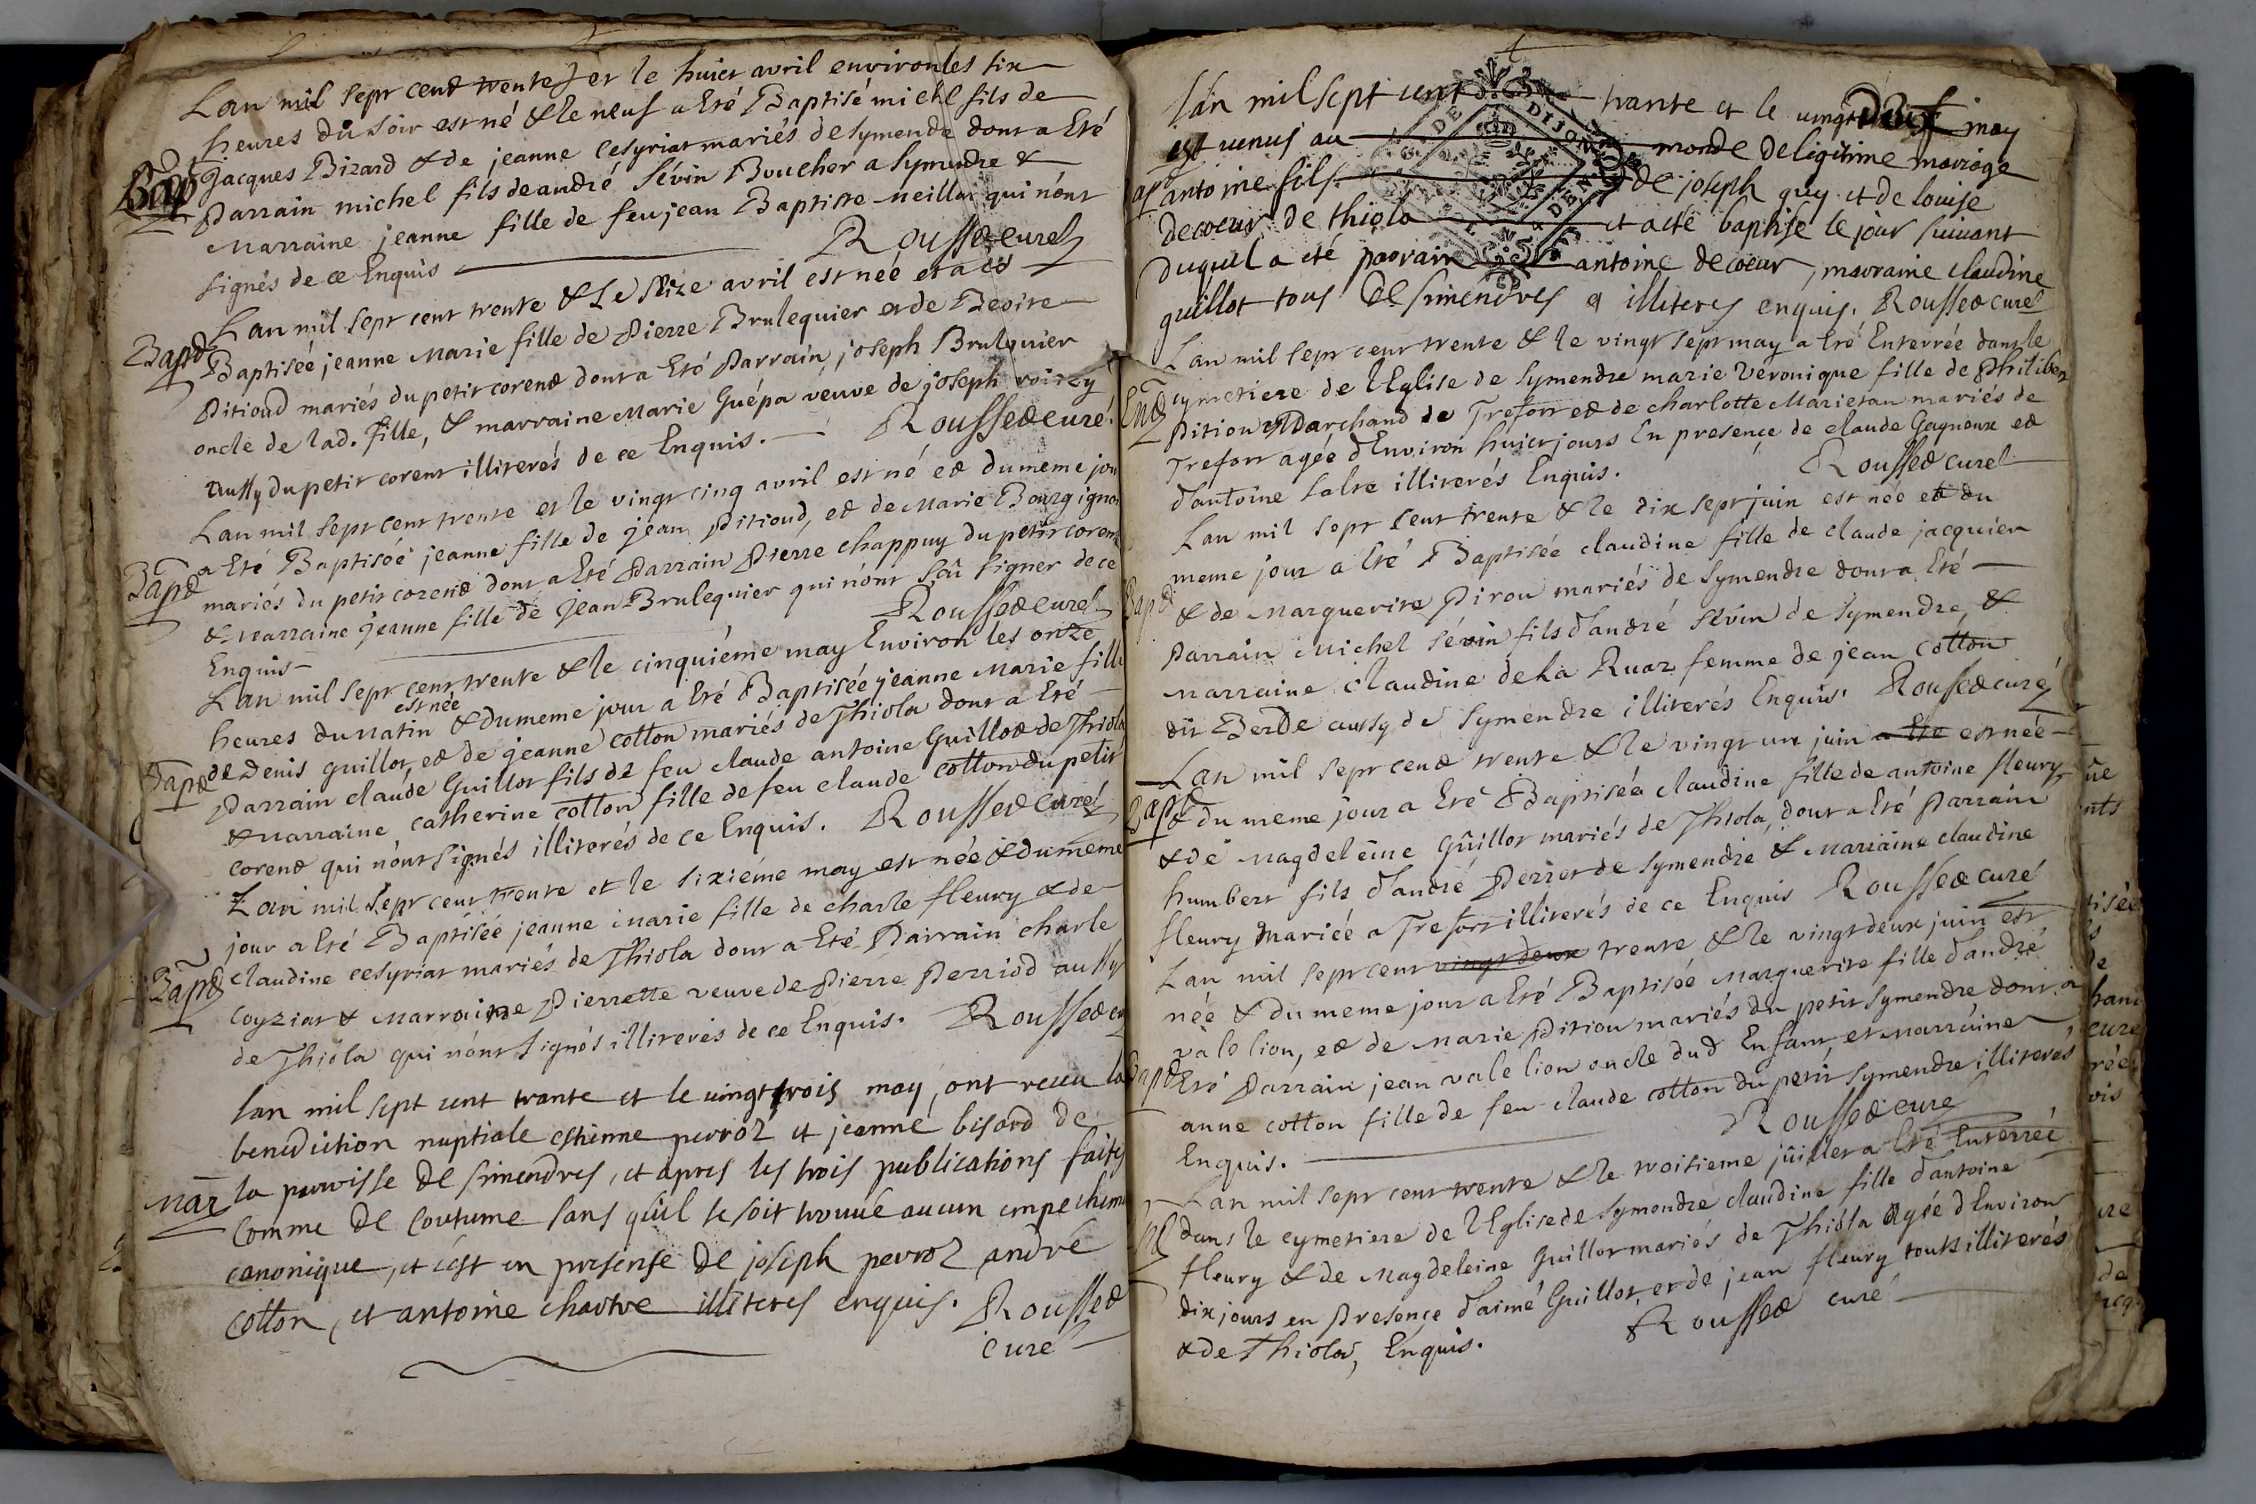 Lan mil sept cent trente et le huict avril environ les six
heures du soir est né & le neuf a Eté Baptisé michel fils de
Bapt jacques Bizard & de jeanne cesyriat mariés de symendre dont a Eté
Parrain michel fils de andré sévin Boucher a symendre &
Marraine jeanne fille de feu jean Baptiste neillat qui nont
signés de ce Enquis Roussed curé
Lan mil sept cent trente & Le seize avril est née et a eté
Bapt Baptisée jeanne Marie fille de Pierre Brulequier et de
Pitioud mariés du petit corent dont a Eté Parrain joseph Brulquier
oncle de lad. fille, & marraine Marie Guépa veuve de joseph
Aussy du petit corent illiterés de ce Enquis. Roussed curé
Lan mil sept cent trente et le vingt cinq avril est né et du meme jour
Bapt a Eté Baptisée jeanne fille de jean Pitioud, et de Marie Bourgignon
mariés du petit corent dont a Eté Parrain Pierre chappuy du petit corent
& Marraine jeanne fille de jean Brulequier qui nont sçu signer de ce
Enquis Roussed curé
Lan mil sept cent trente & le cinquiéme may Environ les onze
heures du Matin est née & du meme jour a Eté Baptisée jeanne Marie fille
Bapt de Denis guillot, et de jeanne cotton mariés de Thiola dont a Eté
Parrain claude Guillot fils de feu claude antoine Guillot de Thiola
& Marraine catherine cotton fille de feu claude cotton du petit
corent qui nont signés illiterés de ce Enquis. Roussed curé
Lan mil sept cent trente et le sixiéme may est née & du meme
jour a Eté Baptisée jeanne marie fille de charle fleury & de
Bapt claudine cesyriat mariés de Thiola dont a Eté Parrain charle
Coyziat & Marraine Pierrette veuve de Pierre Perriod aussy
de Thiola qui nont signés illiterés de ce Enquis. Roussed curé
lan mil sept cent trante et le vingt trois may, ont receu la
benediction nuptiale estienne perroz et jeanne bisard de
Mar la parroisse de simendres, et apres les trois publications faites
comme de coutume sans quil se soit trouué aucun empechement
canonique, et cest en presense de joseph perroz andre
cotton, et antoine chartre illiteres enquis. Roussed
curé
lan mil sept cent trante et le vingt deux may
est venus au monde de legitime mariage
Bapt antoine fils de joseph guy et de louise
decoeur de thiola et a eté baptise le jour suivant
duquel a été parrain antoine decoeur, marraine claudine
guillot tous de simendres et illiteres enquis. Roussed curé
Lan mil sept cent trente & le vingt sept may a Eté Enterrée dans le
Ent cymetiere de lEglise de symendre marie veronique fille de Philibert
Pitiou Marchand de Trefort et de charlotte Marietan mariés de
Trefort agée dEnviron huict jours En presence de claude Gagneux et
dantoine salte illiterés Enquis. Roussed curé
Lan mil sept cent trente & le dix sept juin est née et du
meme jour a Eté Baptisée claudine fille de claude jacquier
Bapt & de Marguerite Pirou mariés de symendre dont a Eté
Parrain Michel sévin fils dandré sévin de symendre, &
Marraine claudine de la Ruaz femme de jean cotton
dit Berde aussy de symendre illiterés Enquis. Roussed curé
Lan mil sept cent trente & le vingt un juin a Eté est née
Bapt & du meme jour a Eté Baptisée claudine fille de antoine fleury
& de Magdeleine Guillot mariés de Thiola, dont a Eté Parrain
humbert fils dandré Perret de symendre & Marraine claudine
fleury mariée a Trefort illiterés de ce Enquis Roussed curé
Lan mil sept cent vingt deux trente & le vingt deux juin est
née & du meme jour a Eté Baptisée Marguerite fille dandré
vale lion, et de Marie Pitiou mariés du petit symendre dont a
Bapt Eté Parrain jean vale lion oncle dud Enfant, et marraine
anne cotton fille de feu claude cotton du petit symendre illiterés
Enquis. Roussed curé
Lan mil sept cent trente & le troisieme juillet a Eté Enterrée
dans le cymetiere de lEglise de symendre claudine fille dantoine
fleury & de Magdeleine Guillot mariés de Thiola Agée dEnviron
dix jours en Presence daimé Guillot, et de jean fleury touts illiterés
& de Thiola, Enquis. Roussed curé